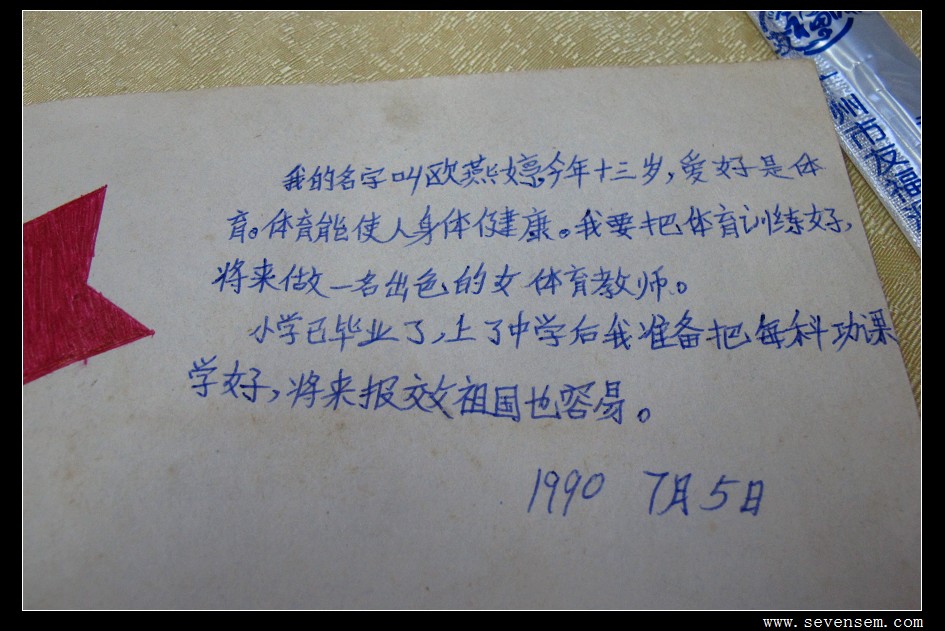 我的名字叫欧燕婷,今年十三岁,爱好是体
育。体育能使人身体健康。我要把体育训练好,
将来做一名出色的女体育教师。
小学已毕业了,上了中学后我准备把每科功课
学好,将来报效祖国也容易。
1990 7月5日
州市友福
www.sevensem.com